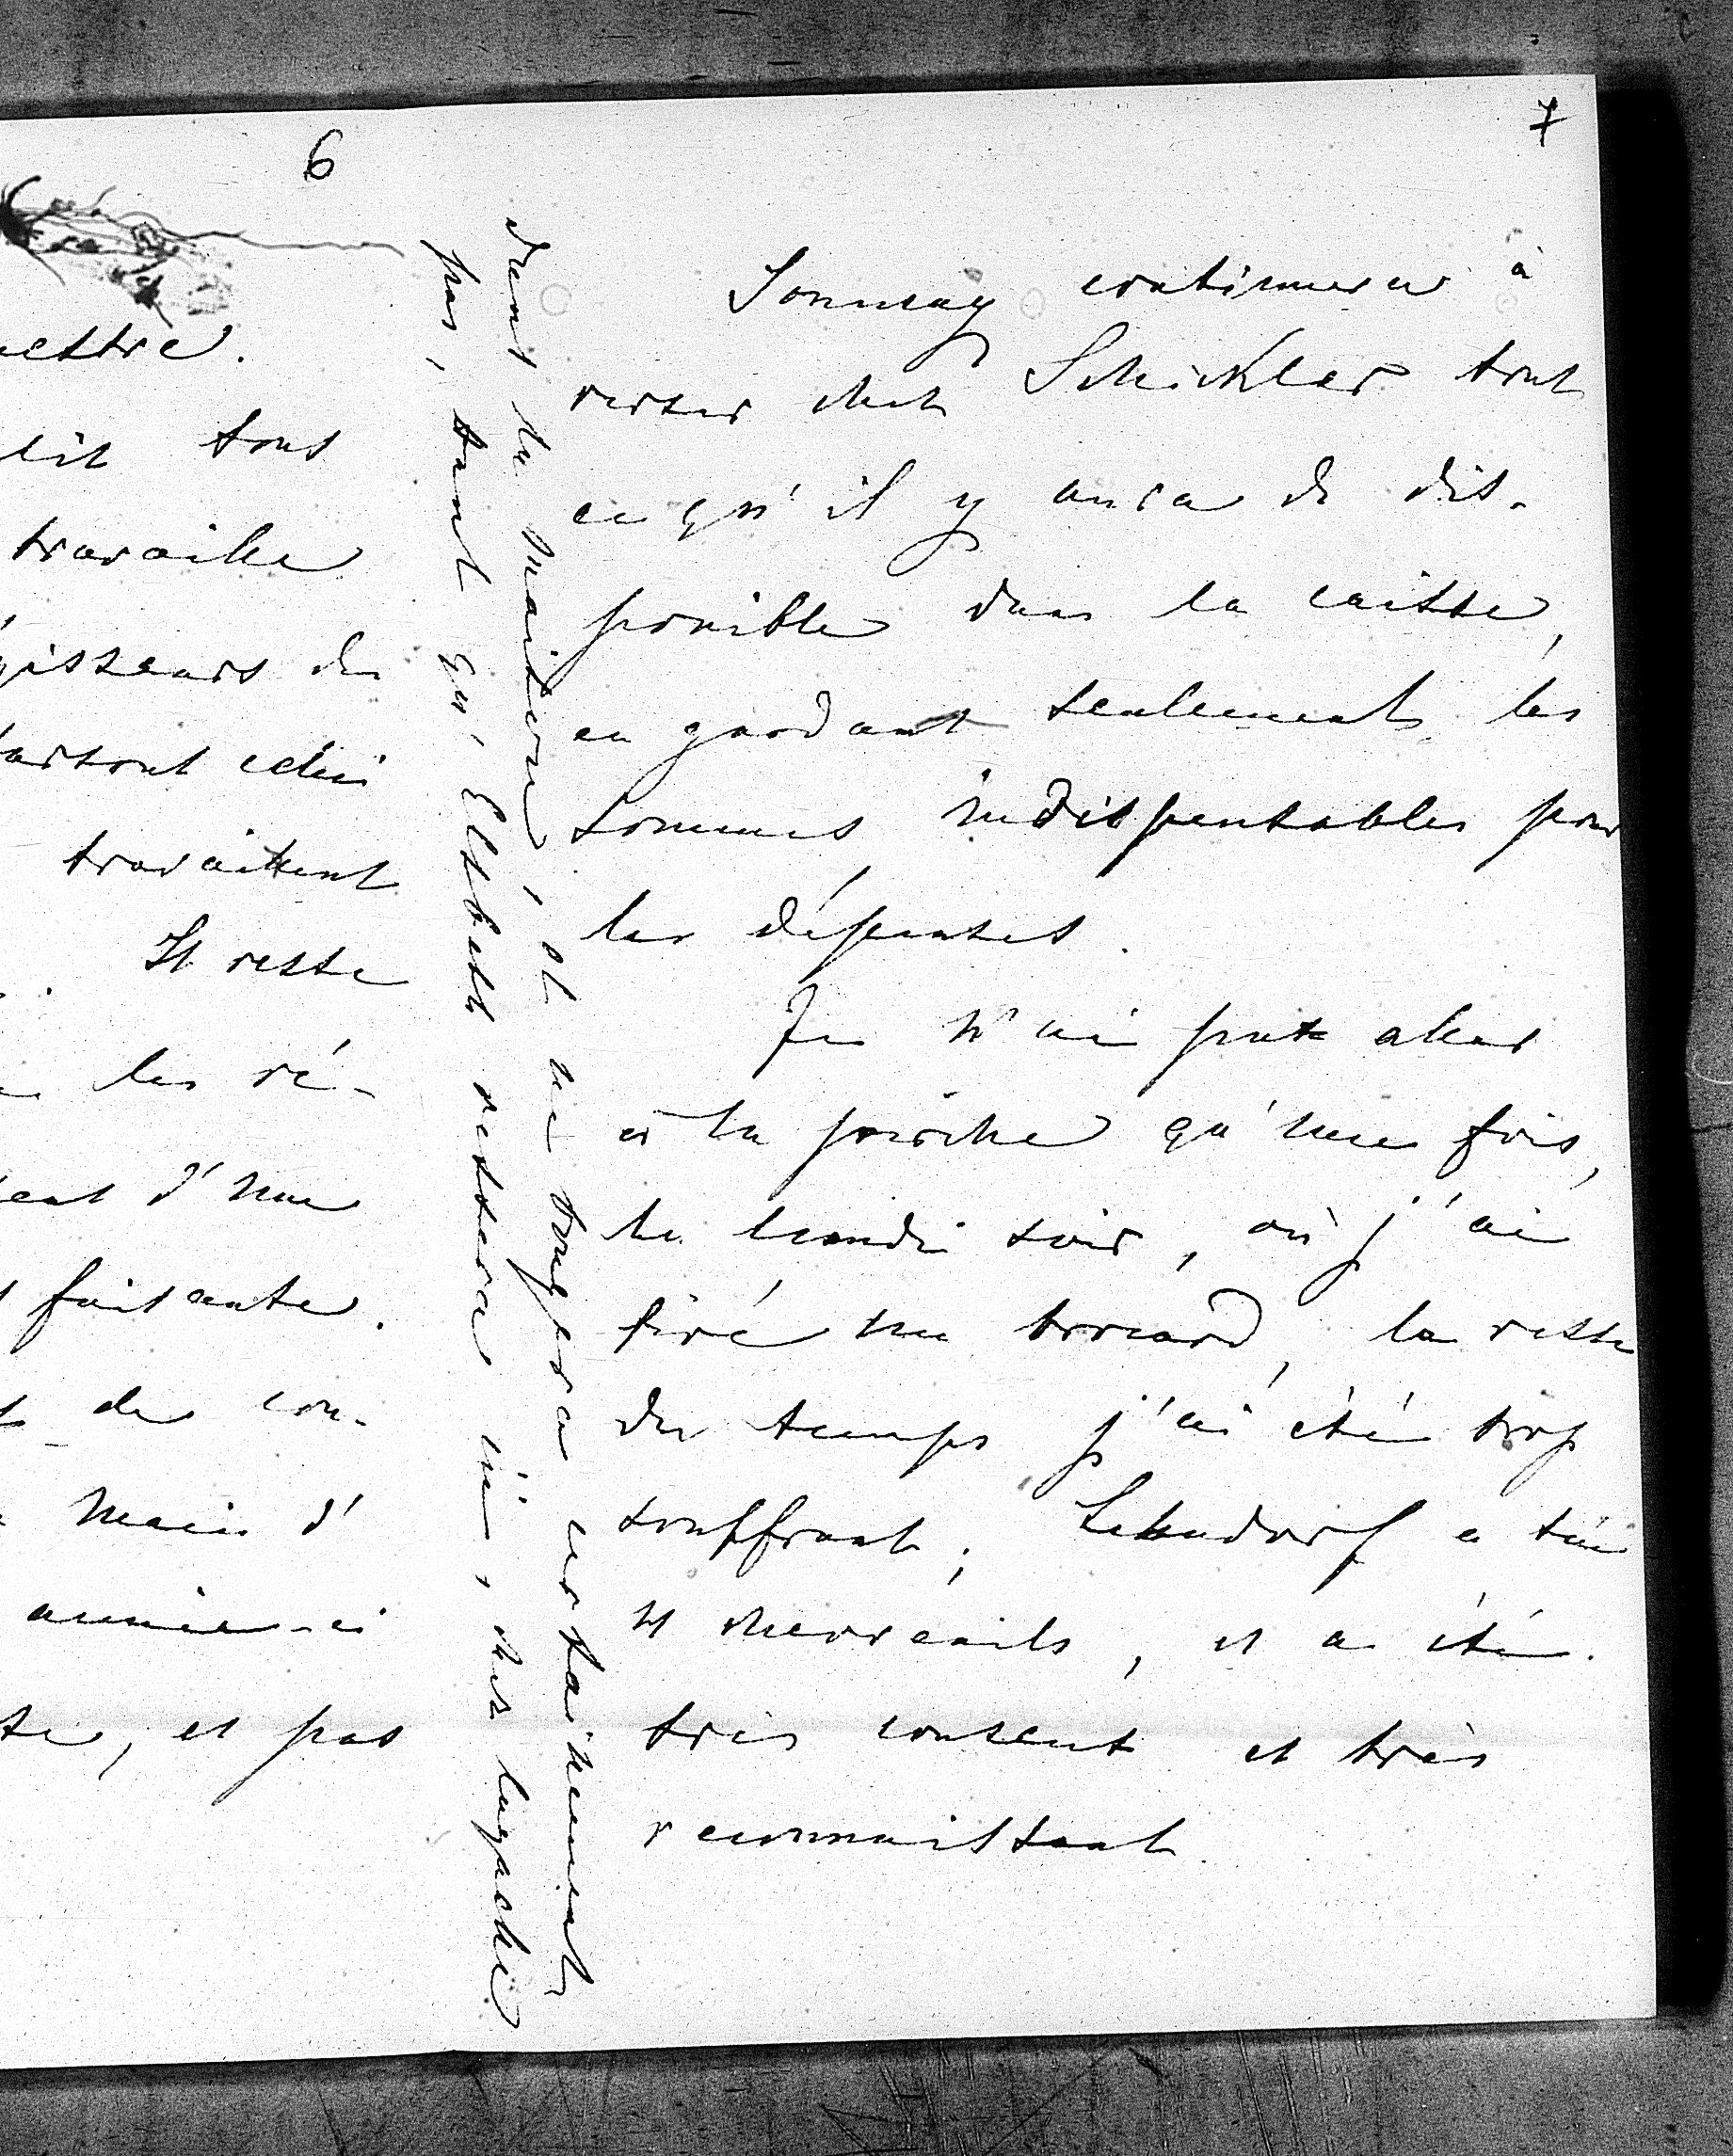 6
mettre.
tous
travaille
gisseurs de
partout celui
travaillent
Il reste
les ré-
d'une
faisante.
de con-
main d'
année-ci
et pas
pas, tant qu'Elsbeth restera ici, chez
dans la maison, et ne soupera certainement
7
Sonnay continuera à
verser chez Schickler tout
ce qu'il y aura de dis-
ponible dans la caisse,
en gardant seulement les
sommes indispensables pour
les dépenses.
Je n'ai put aller
à la pirche qu'une fois,
le lundi soir, où j'ai
tiré un brocard, le reste
du temps j'ai été trop
souffrant; Lehndorf a tué
11 chevreuils, et a été
très content et très
reconnaissant.